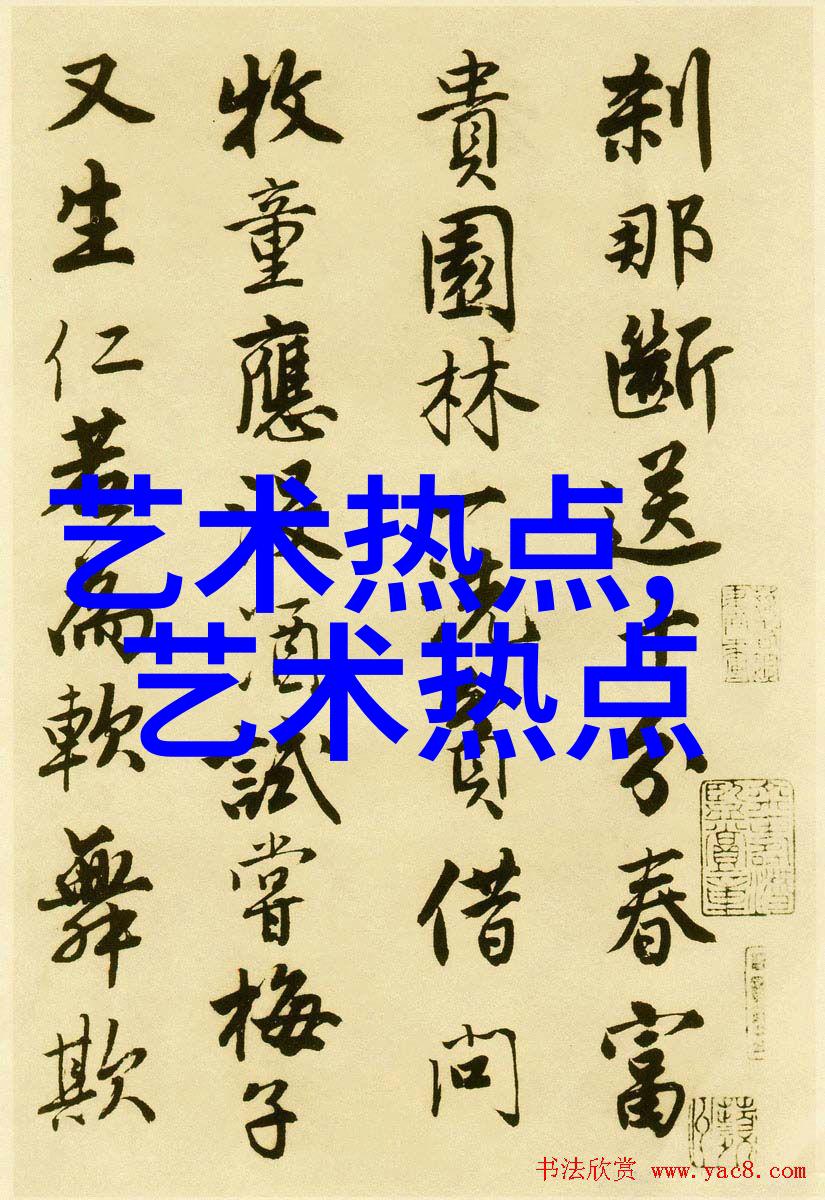 刹那斷送十分春富
貴園林一洗貧借問
牧童應沒酒試嘗梅子
又生仁若為軟舞欺
艺术热点,
艺术热点
书法欣赏 www.yac8.com